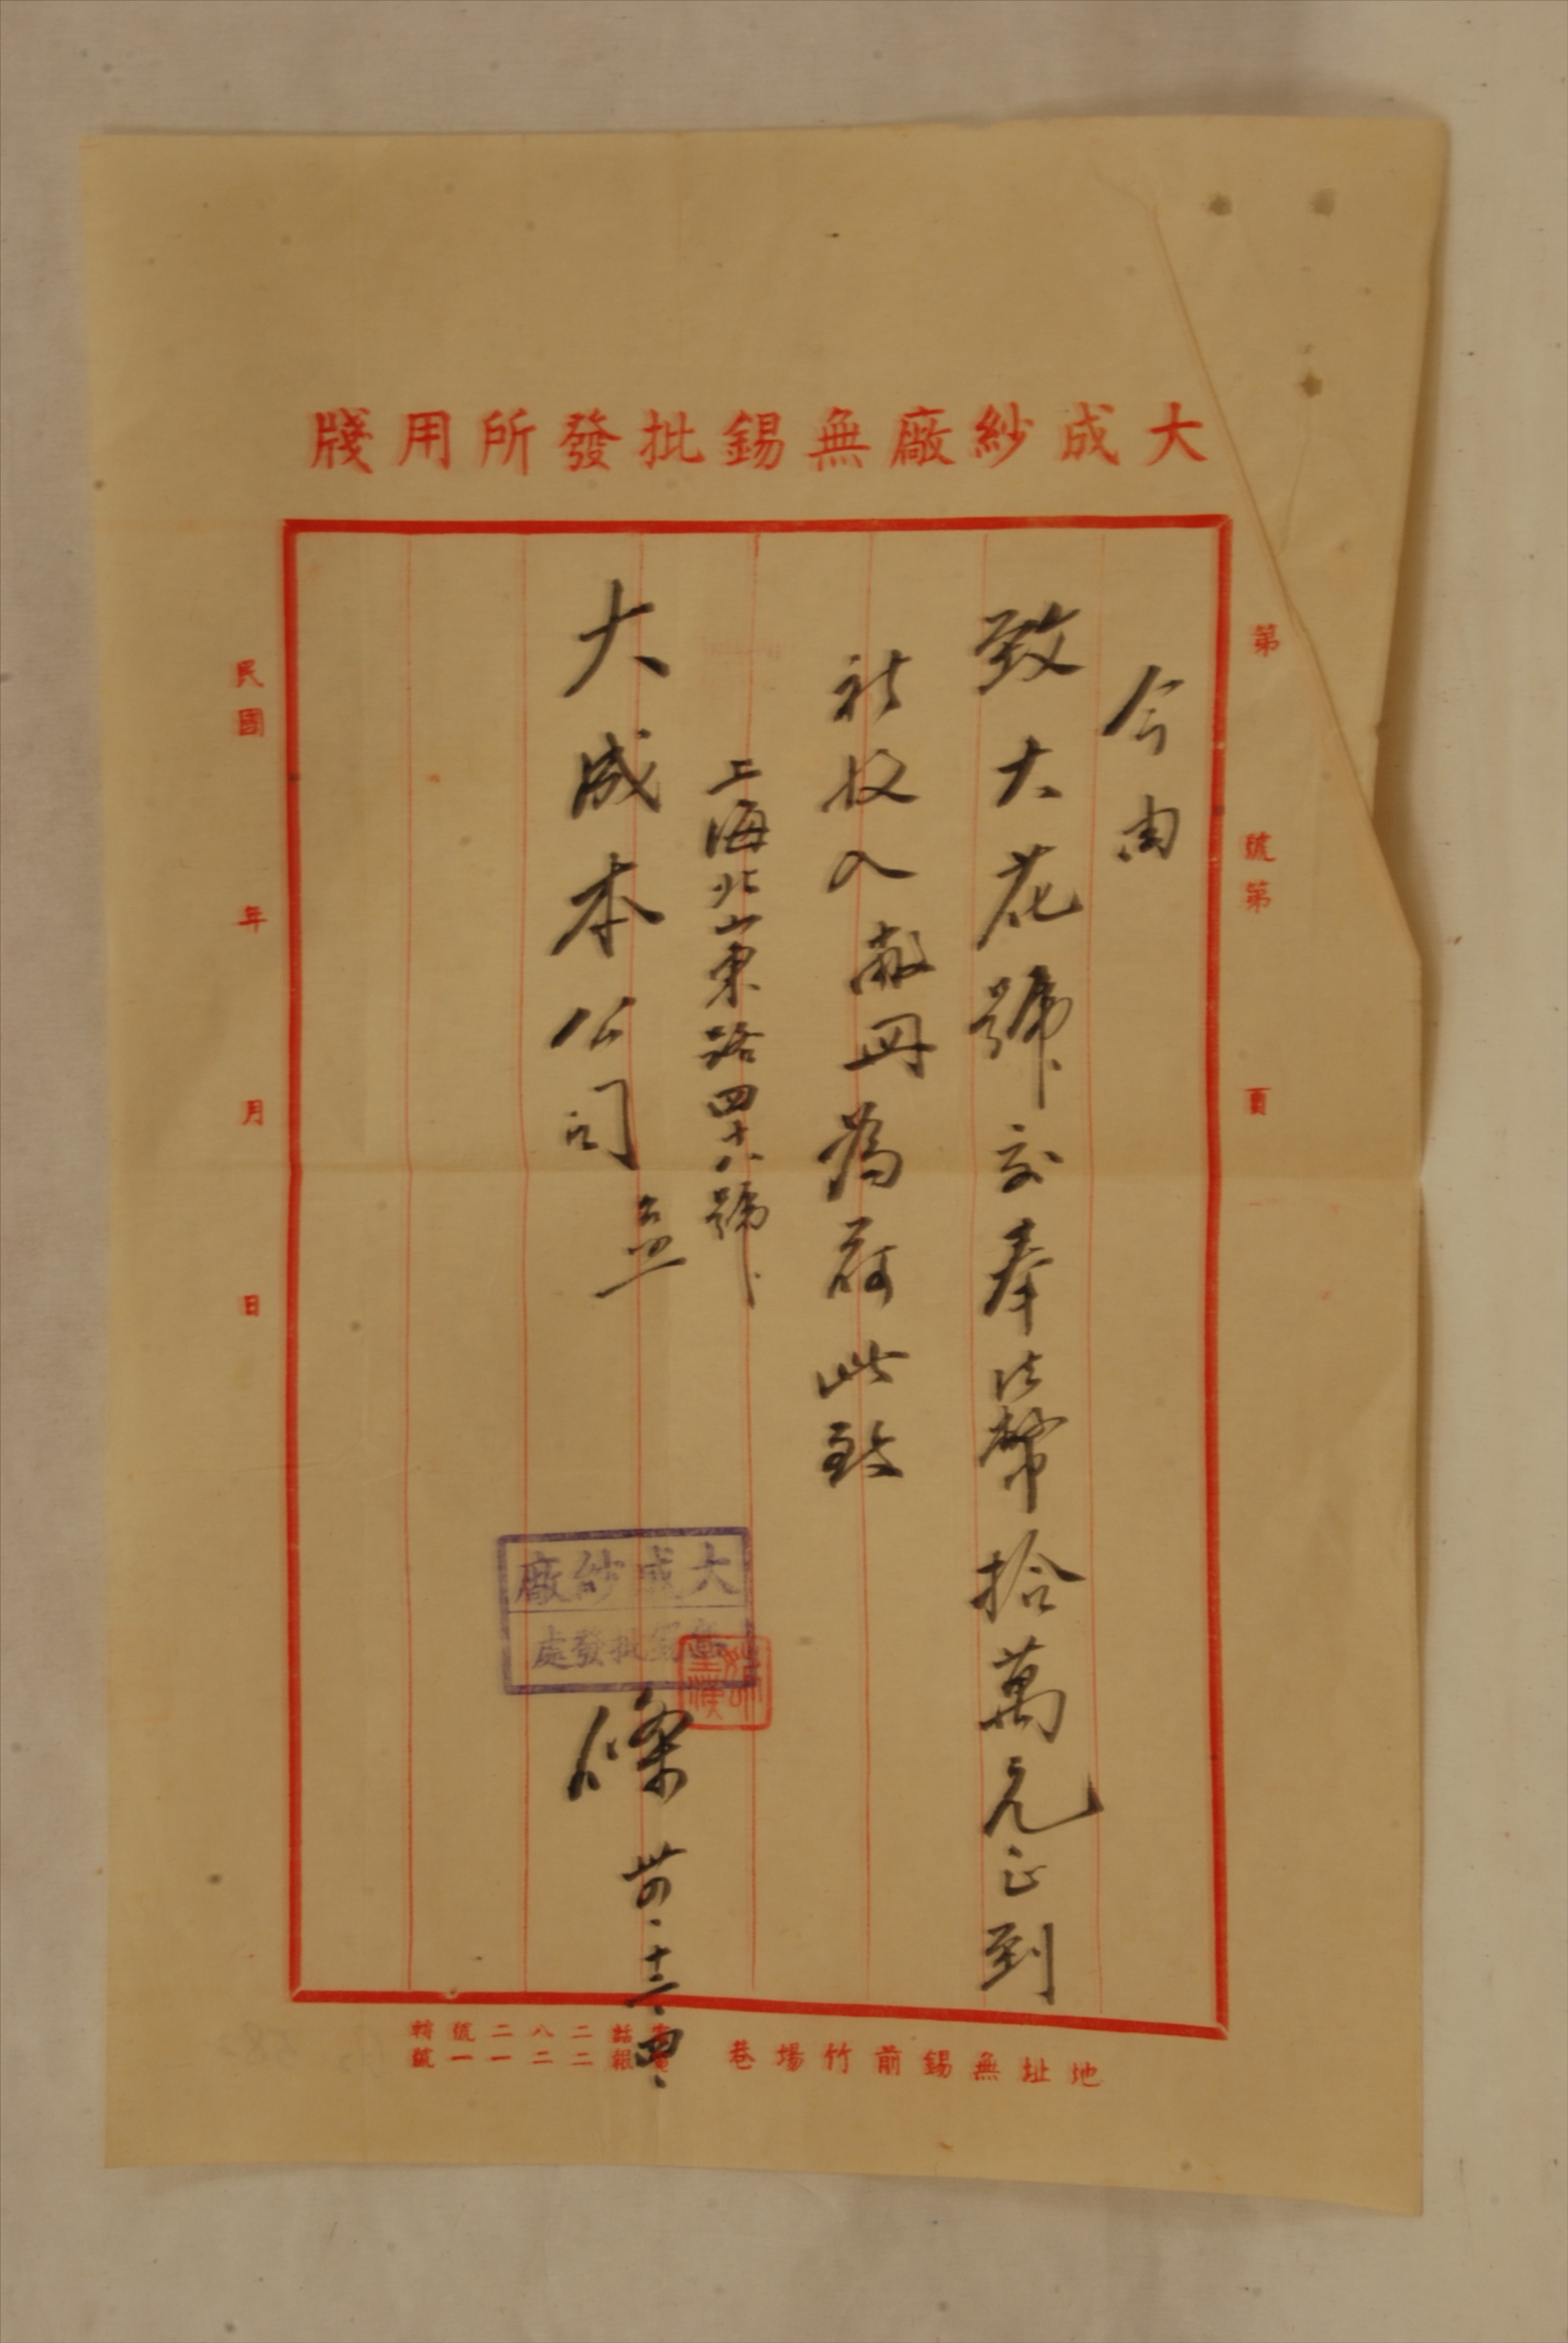 大成紗廠無錫批發所用牋
第 號第 頁
今由
致大花號交奉法幣拾萬元正到
祈收入敝冊為荷此致
上海北山東路四十八號
大成本公司 台照
大成紗廠
無錫批發處
條 卅四.十二.四.
民國 年 月 日
地址無錫前竹場巷
電話二八二號轉
電報二二一一號